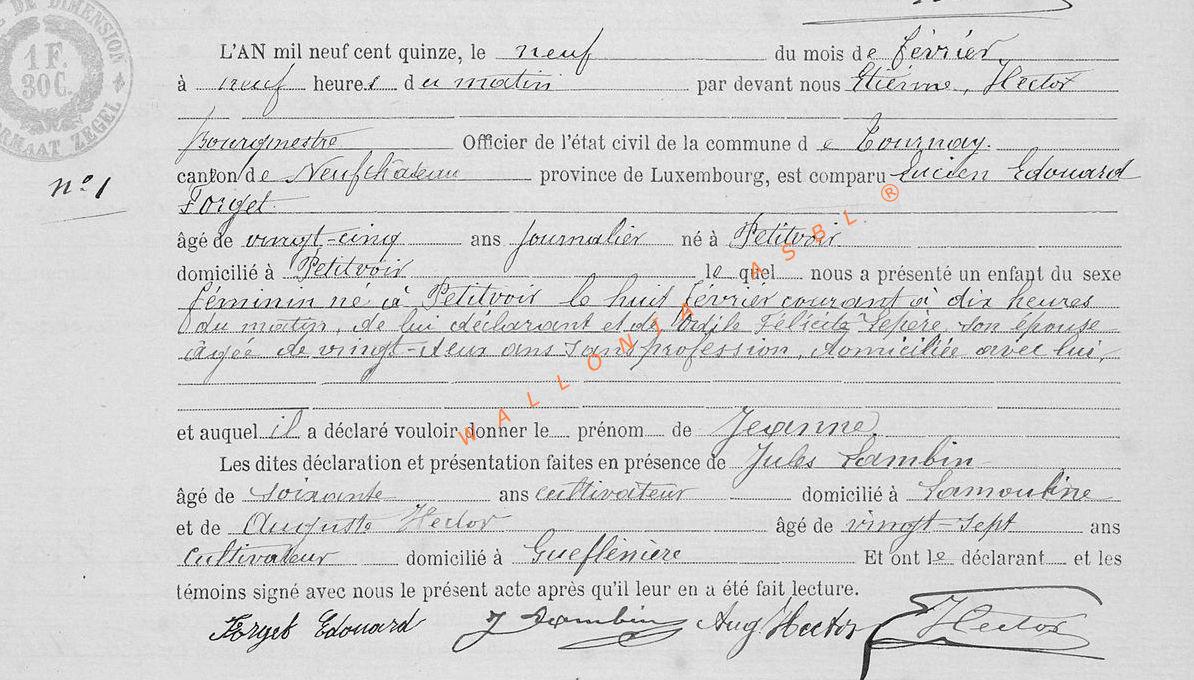 E DE DIMENSION
1 F.
30 C.
RMAAT ZEGEL
L'AN mil neuf cent quinze, le neuf du mois de février
à neuf heures du matin par devant nous Etienne, Hector
Bourgmestre Officier de l'état civil de la commune de Tournay.
n° 1
canton de Neufchâteau province de Luxembourg, est comparu Lucien Edouard
Forget
âgé de vingt-cinq ans journalier né à Petitvoir
domicilié à Petitvoir lequel nous a présenté un enfant du sexe
féminin né à Petitvoir le huit février courant à dix heures
du matin, de lui déclarant et de Odile Félicité Lepère, son épouse
âgée de vingt-deux ans sans profession, domiciliée avec lui,
et auquel il a déclaré vouloir donner le prénom de Jeanne.
Les dites déclaration et présentation faites en présence de Jules Lambin
âgé de soixante ans cultivateur domicilié à Lamouline
et de Auguste Hector âgé de vingt-sept ans
cultivateur domicilié à Gueflénière Et ont le déclarant et les
témoins signé avec nous le présent acte après qu'il leur en a été fait lecture.
Forget Edouard J Lambin Aug. Hector Hector
WALLONIA ASBL ®